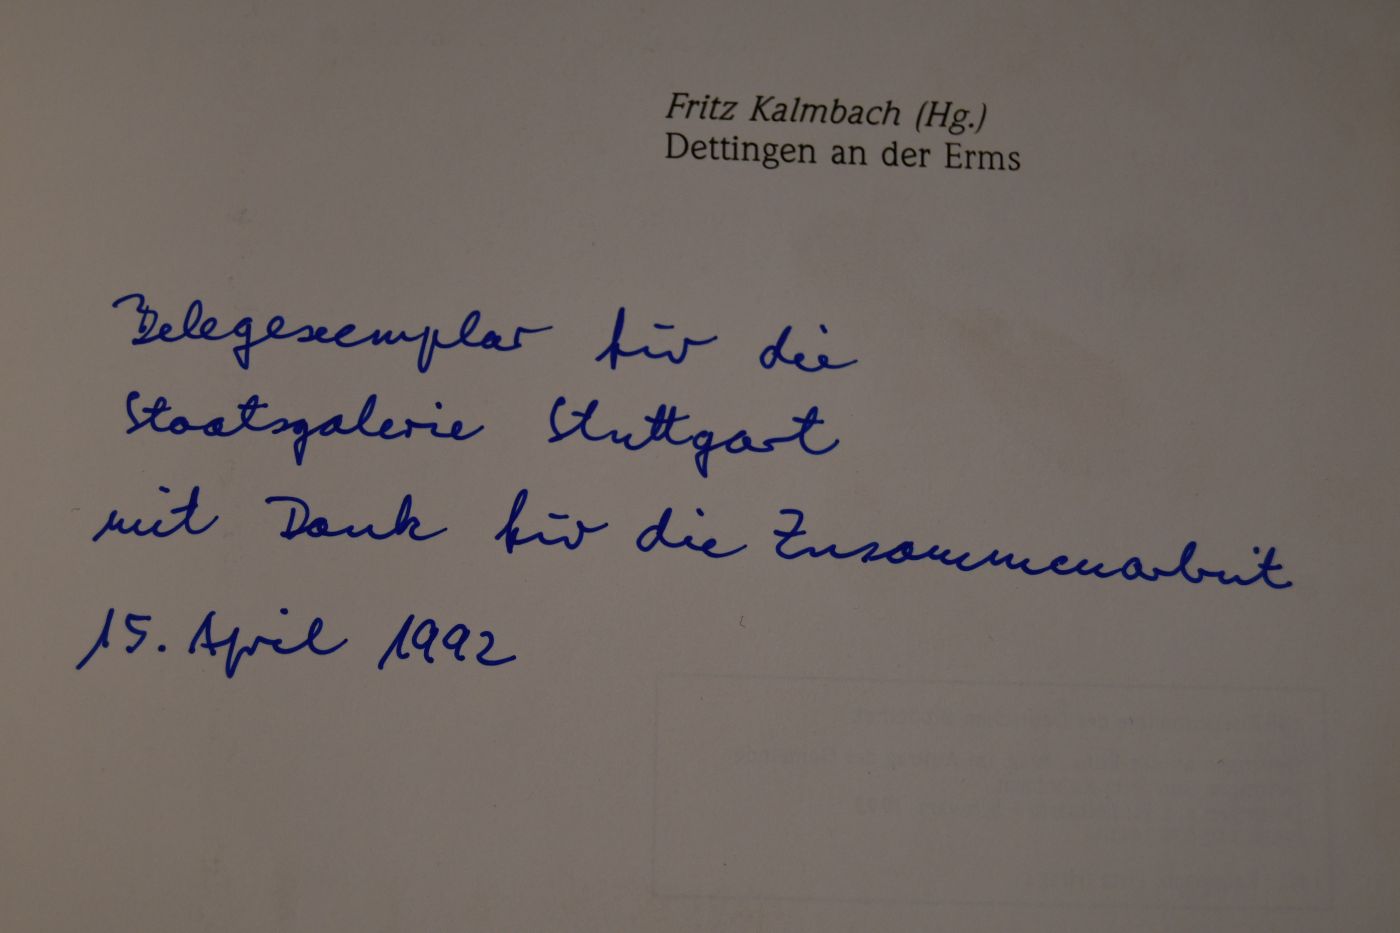 Fritz Kalmbach (Hg.)
Dettingen an der Erms
Belegexemplar für die
Staatsgalerie Stuttgart
mit Dank für die Zusammenarbeit
15. April 1992